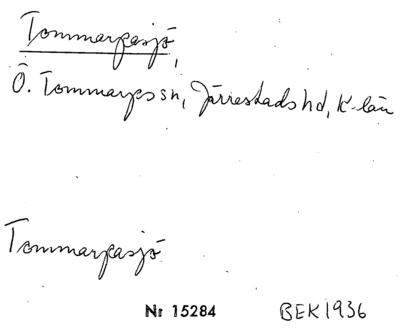 Tommarpasjö,
Ö. Tommarps sn, Järrestads hd, K-län
Tommarpasjö
Nr 15284 BEK 1936